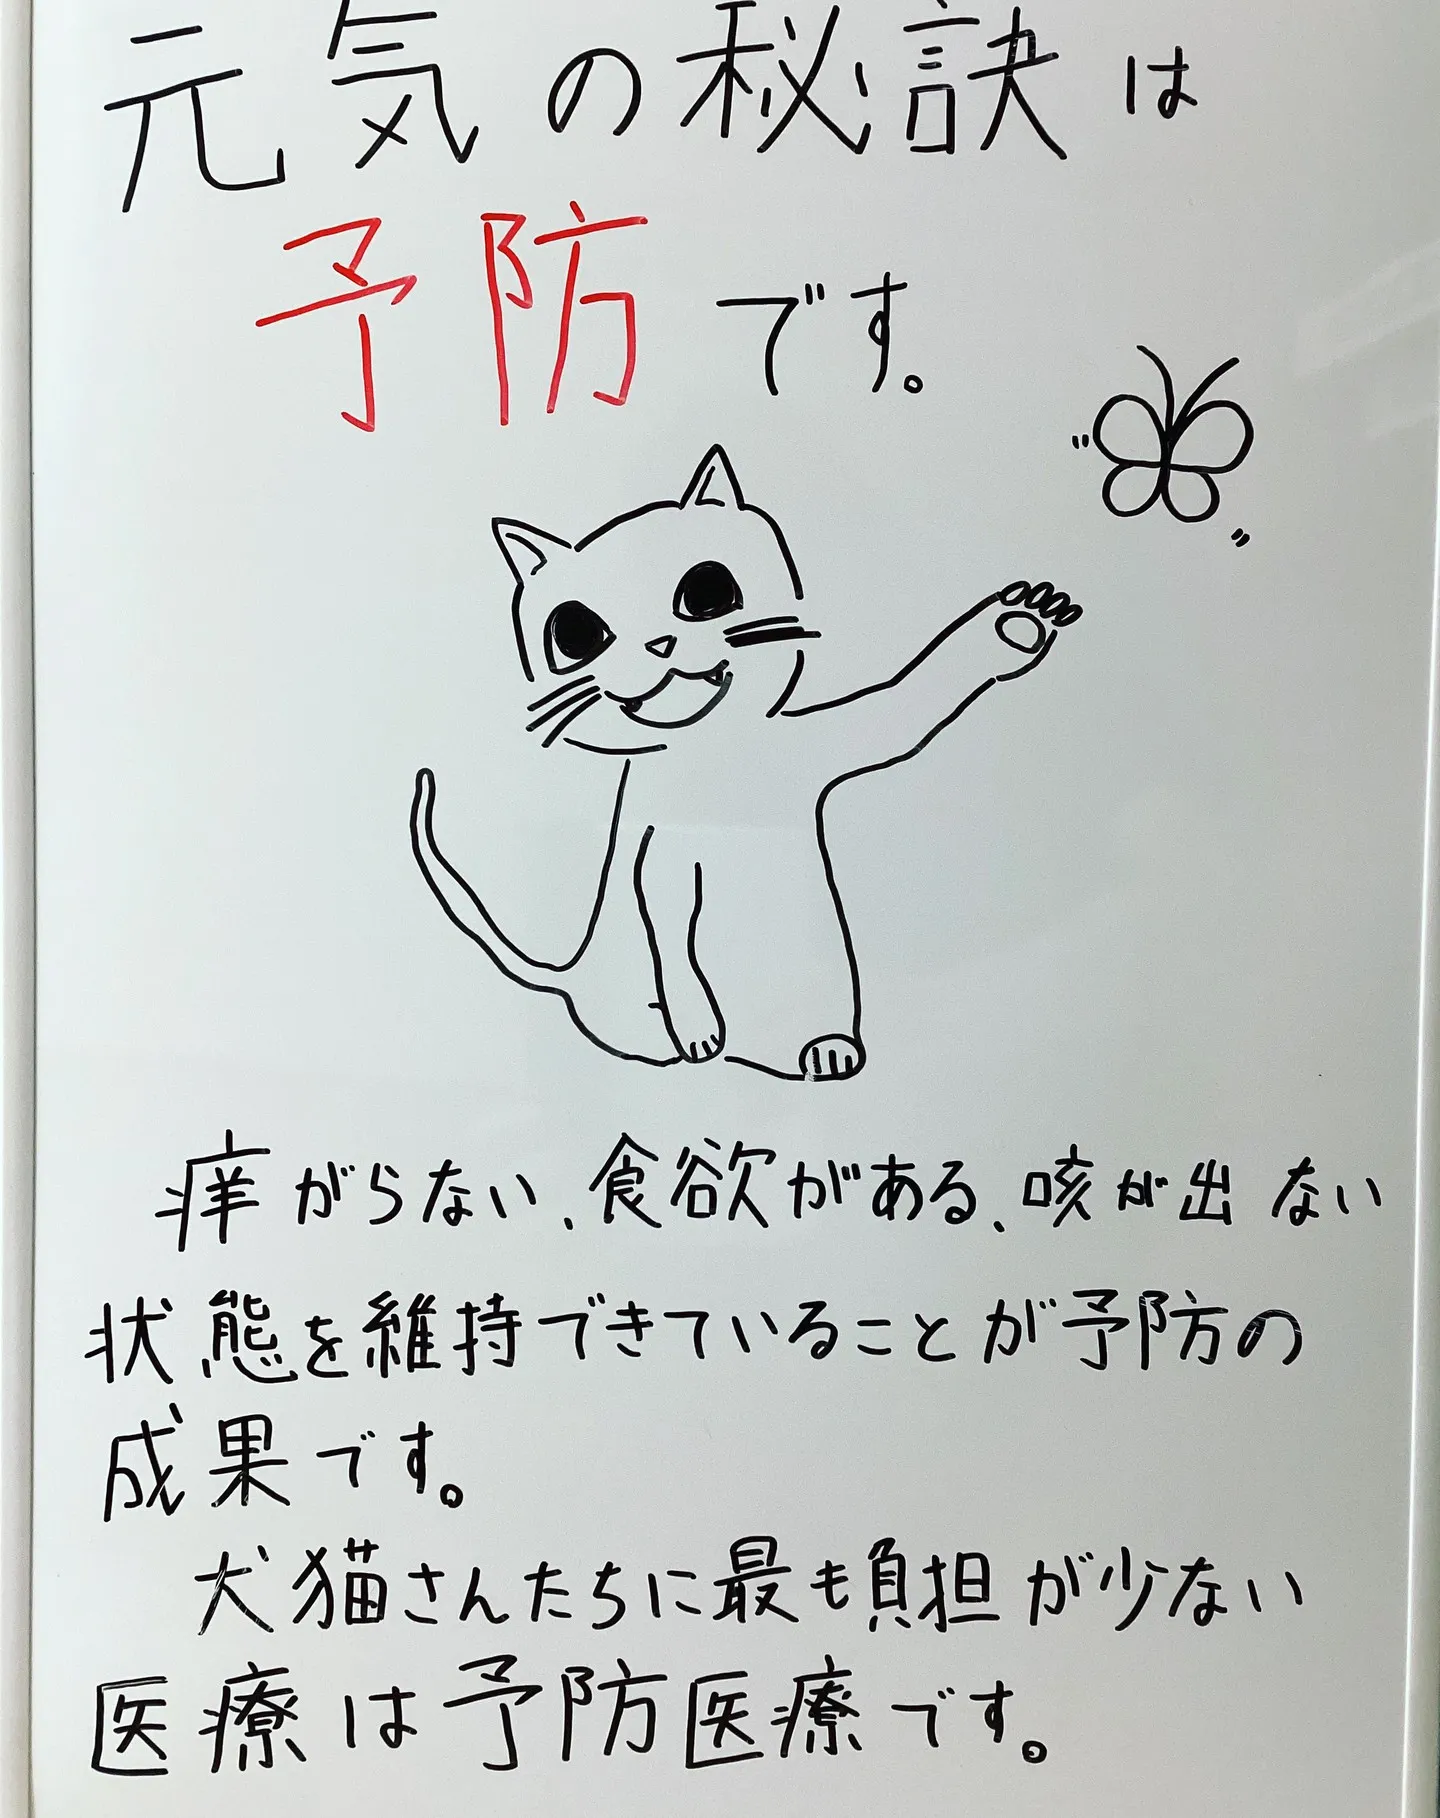 元気の秘訣は
予防です。
痒がらない、食欲がある、咳が出ない
状態を維持できていることが予防の
成果です。
犬猫さんたちに最も負担が少ない
医療は予防医療です。